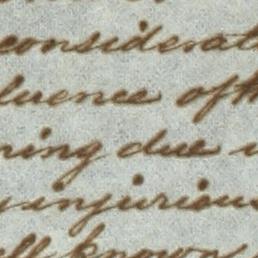 considerat
luence of th
ning due
injurious
ell known